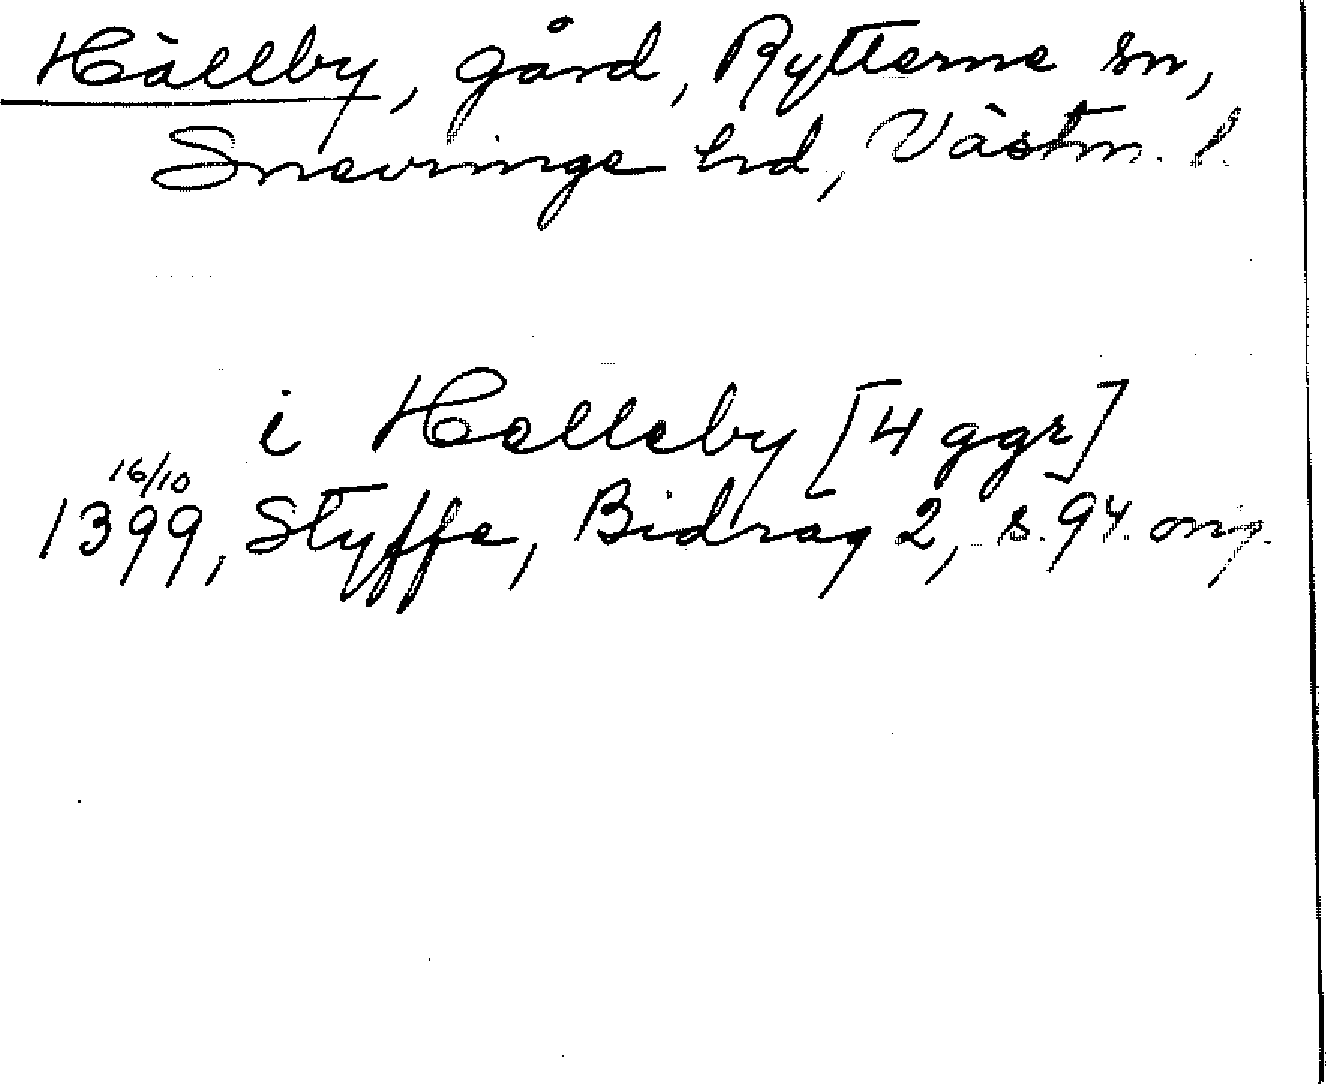 Hällby, gård, Rytterne sn,
Snevringe hd, Västm. l.
i Helleby [4 ggr]
16/10
1399, Styffe, Bidrag 2, s. 94. orig.